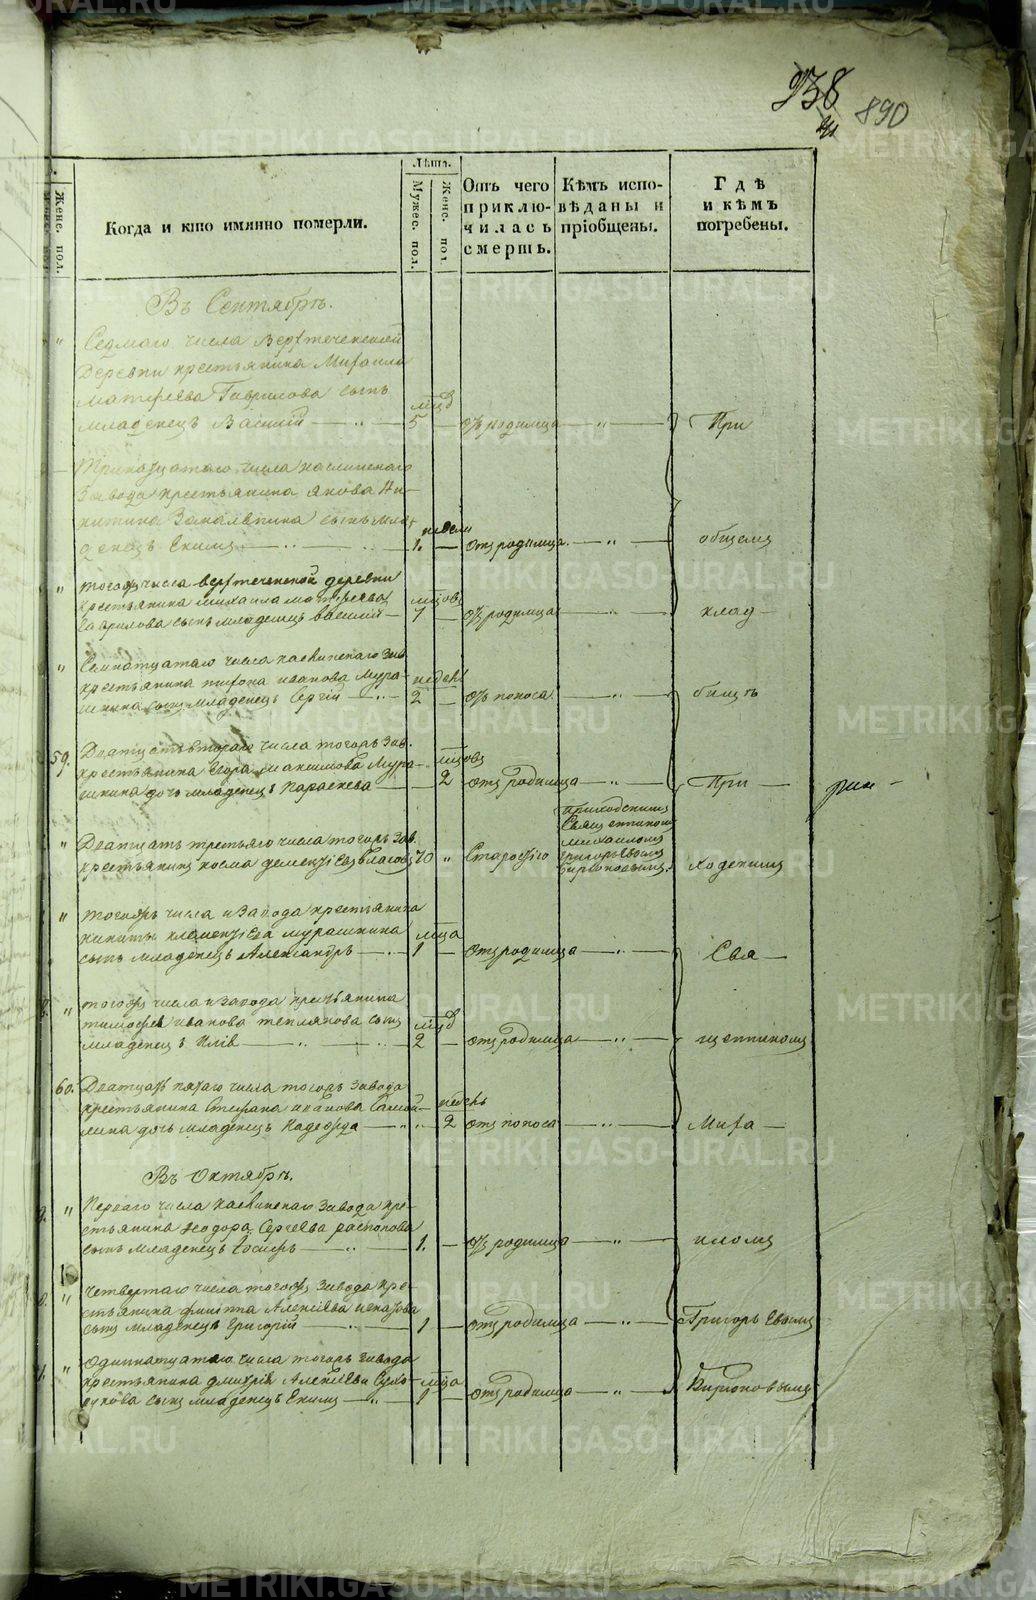 938
890
Женс. пол.
Когда и кто имянно померли.
Лѣта.
Мужес. пол.
Женс. пол
Отъ чего приклю-чилась смерть.
Кѣмъ испо-вѣданы и пріобщены.
Гдѣ и кѣмъ погребены.
Въ Сентябрѣ.
" Седмаго числа Верхтеченской
деревни крестьянина Михаила
Матфеева Гаврилова сынъ
младенецъ Василій — 5 — отъ родимца — " — При
Тринатцатаго числа каслинскаго
Завода крестьянина Якова Ни-
китина сынъ мла-
денецъ Екимъ — недели 1. — отъ родимца. — " — общемъ
" тогожъ числа верхтеченской деревни
крестьянина михаила матфеева
Гаврилова сынъ младенецъ василий — отъ родимца — " — клад
" Семнатцатаго числа каслинскаго зав.
крестьянина иванова Мура-
шкина сынъ младенецъ Сергій — недель 2 — отъ поноса — " — бищѣ
59. Дватцать втораго числа тогожъ зав.
крестьянина Егора максимова Мура-
шкина дочь младенецъ Параскева — 2 отъ родимца — " — При
" Дватцать третьяго числа тогожъ зав.
крестьянинъ косма дементіевъ власовъ 70 " Старостію
Приходскимъ
Священникомъ
Михаиломъ
Григорьевымъ
Бирюковымъ.
ходскимъ
" тогожъ числа и Завода крестьянина
никиты клементіева мурашкина
сынъ младенецъ Александръ — мца 1 — отъ родимца — " — Свя
" тогожъ числа и завода крестьянина
тимофея иванова теплякова сынъ
младенецъ Илія — 2 — отъ родимца — " — щенникомъ
60. Дватцать пятаго числа тогожъ завода
крестьянина Стефана иванова
дочь младенецъ Надежда — " недель 2 отъ поноса — " — Миха
Въ Октябрѣ.
9. " Перваго числа каслинскаго завода кре-
стьянина Феодора Сергеева распопова
сынъ младенецъ Іосифъ — " — 1. — отъ родимца — " — иломъ
0. " четвертаго числа тогожъ завода кре-
стьянина филиппа Алексіева
сынъ младенецъ Григорій — 1 — отъ родимца — " — Григорьевымъ
1. " Одиннатцатаго числа тогожъ завода
крестьянина дмитрія Алексіева
сынъ младенецъ Екимъ — " — мца 1 — отъ родимца — " — Бирюковымъ
METRIKI.GASO-URAL.RU